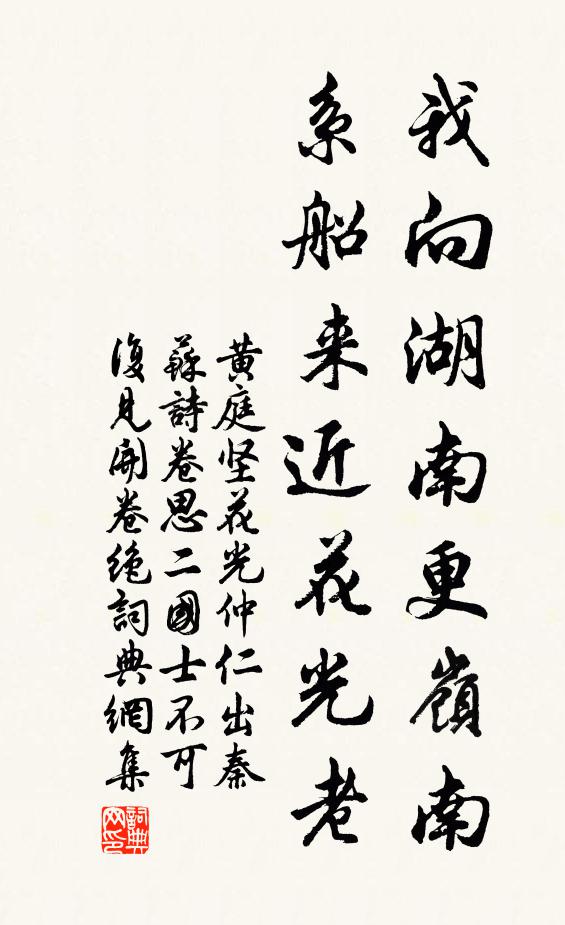 我向湖南更嶺南
系船来近花光老
黄庭坚花光仲仁出秦
蘇詩卷思二國士不可
復見開卷绝詞典網集
詞典网印